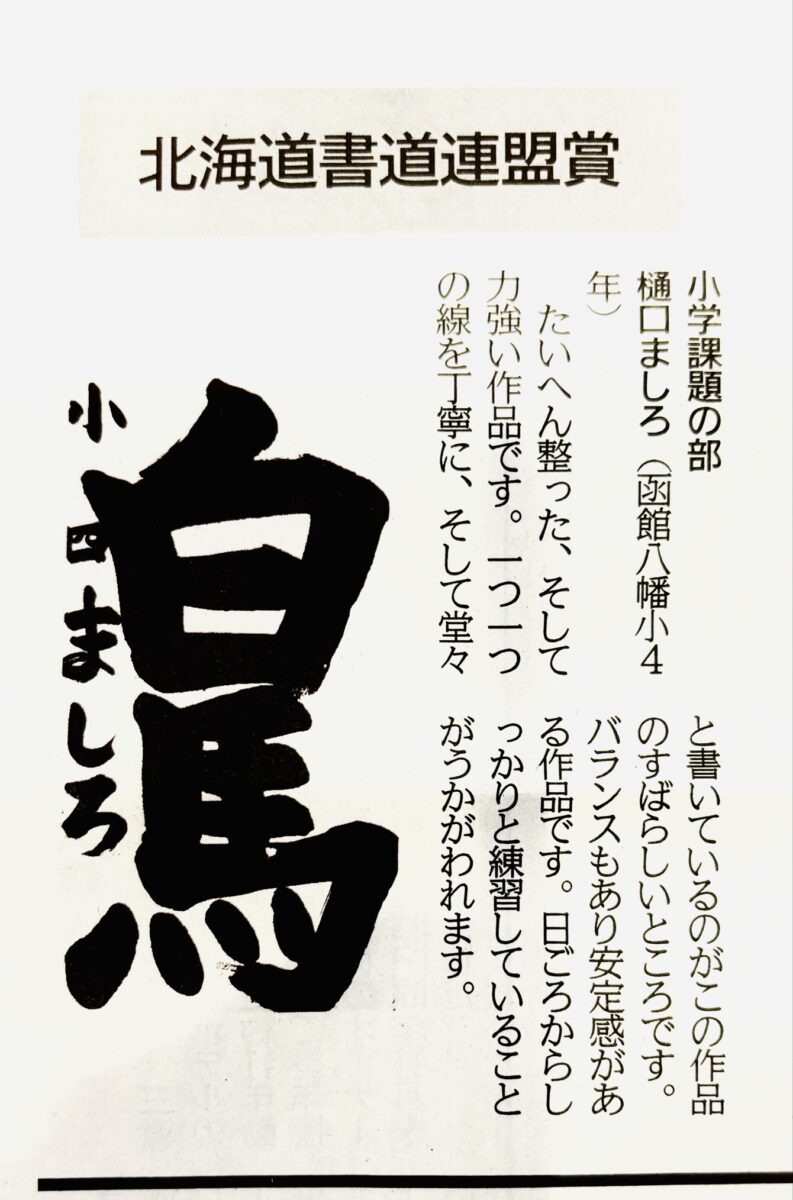 北海道書道連盟賞
小学課題の部
樋口ましろ（函館八幡小４
年）
たいへん整った、そして
力強い作品です。一つ一つ
の線を丁寧に、そして堂々
と書いているのがこの作品
のすばらしいところです。
バランスもあり安定感があ
る作品です。日ごろからし
っかりと練習していること
がうかがわれます。
白馬
小四ましろ